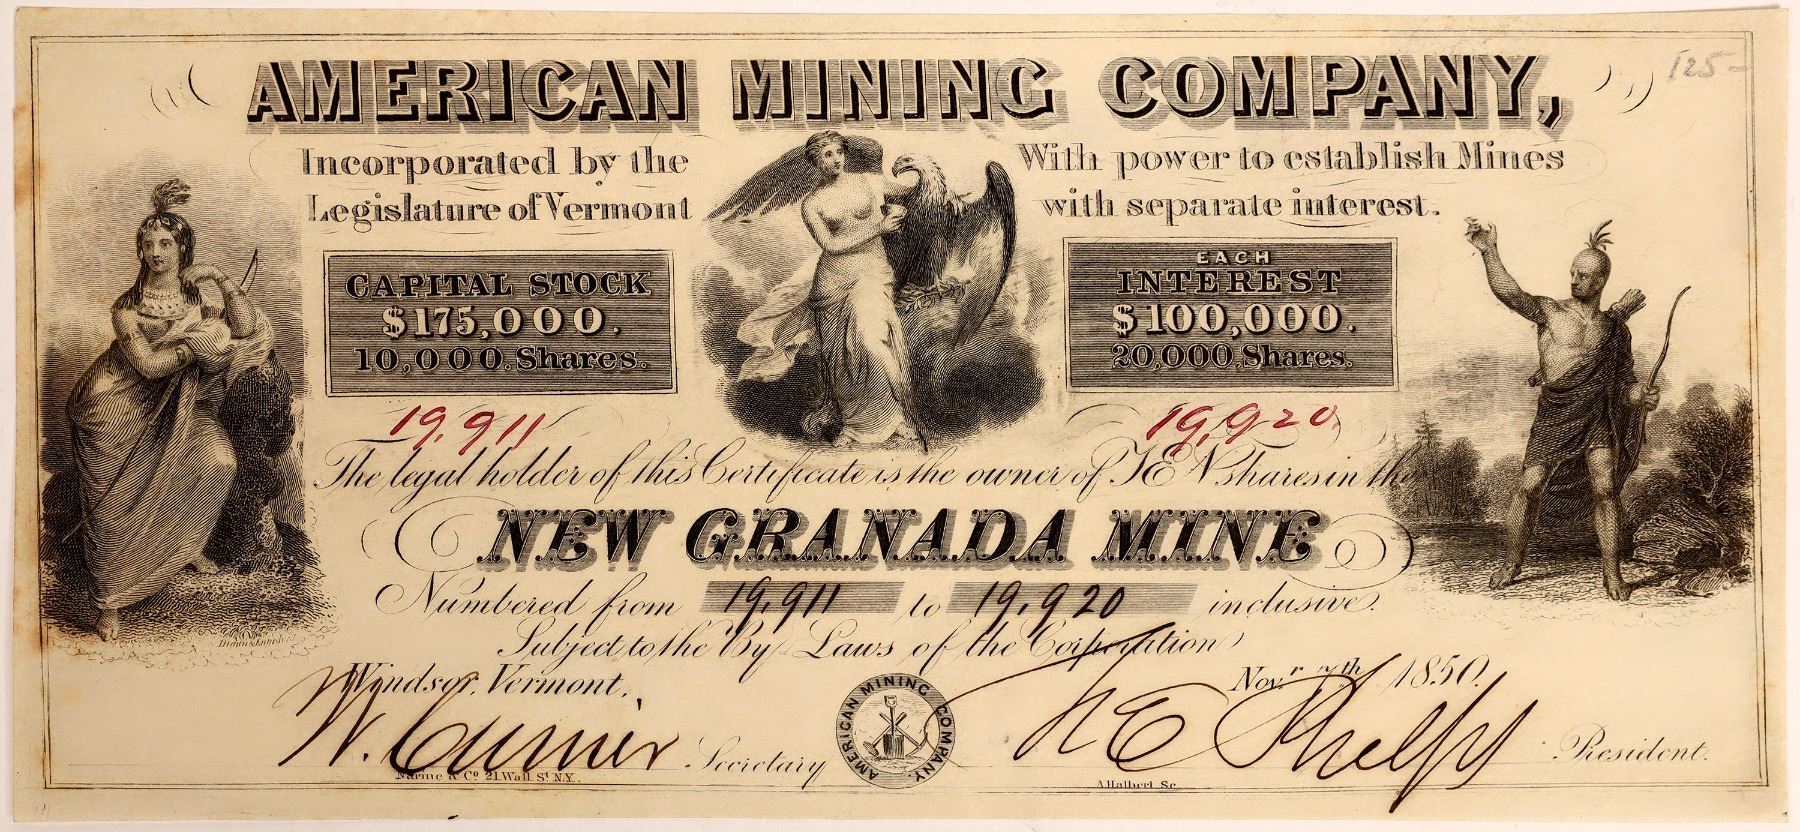 AMERICAN MINING COMPANY,
125-
Incorporated by the
Legislature of Vermont
With power to establish Mines
with separate interest.
CAPITAL STOCK
$175,000.
10,000. Shares.
EACH
INTEREST
$100,000.
20,000 Shares.
19,911
19,920
The legal holder of this Certificate is the owner of TEN shares in the
NEW GRANADA MINE
Numbered from 19,911 to 19,920 inclusive.
Subject to the By-Laws of the Corporation
Windsor, Vermont.
Novr 7th 1850.
W. Currier Secretary
AMERICAN MINING COMPANY.
N E Phelps President.
Narine & Co 21 Wall St N.Y.
A. Halbert Sc.